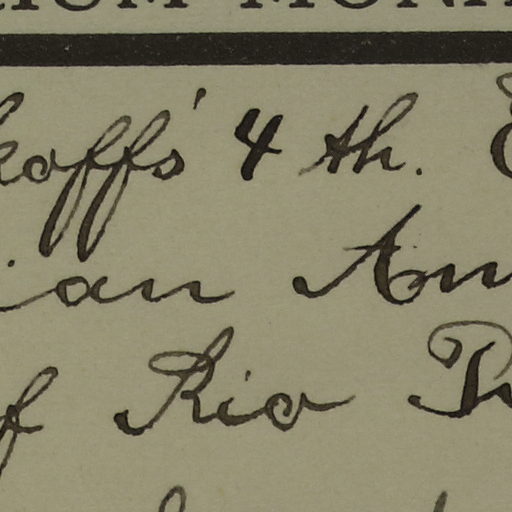 koffs' 4 th.
ian An
of Rio